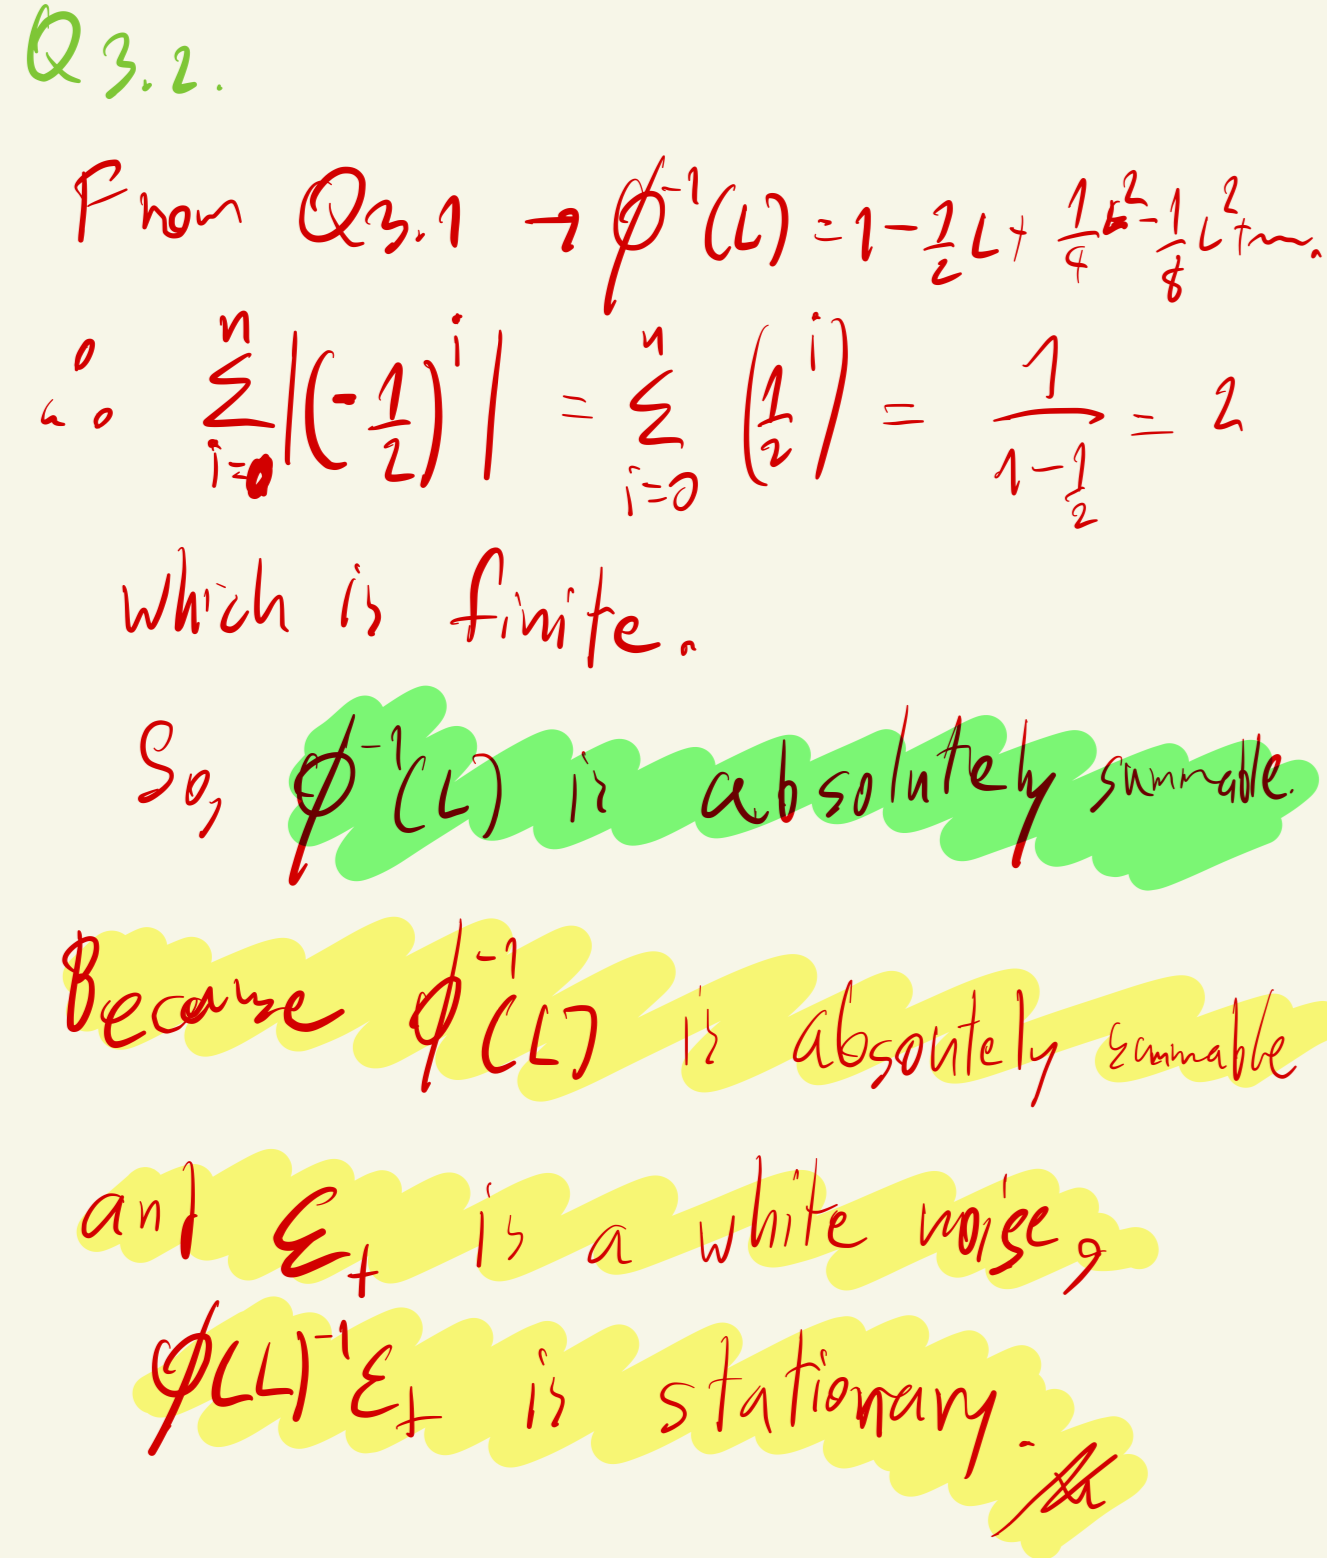 Q 3.2.
From Q3.1 → ϕ⁻¹(L) = 1 - 1/2 L + 1/4 L² - 1/8 L² + ....
∴ Σ_{i=0}^{n} |(-1/2)^i| = Σ_{i=0}^{n} (1/2^i) = 1/(1 - 1/2) = 2
which is finite.
So, ϕ⁻¹(L) is absolutely summable.
Because ϕ⁻¹(L) is absoutely summable
and ε_t is a white noise,
ϕ(L)⁻¹ε_t is stationary.